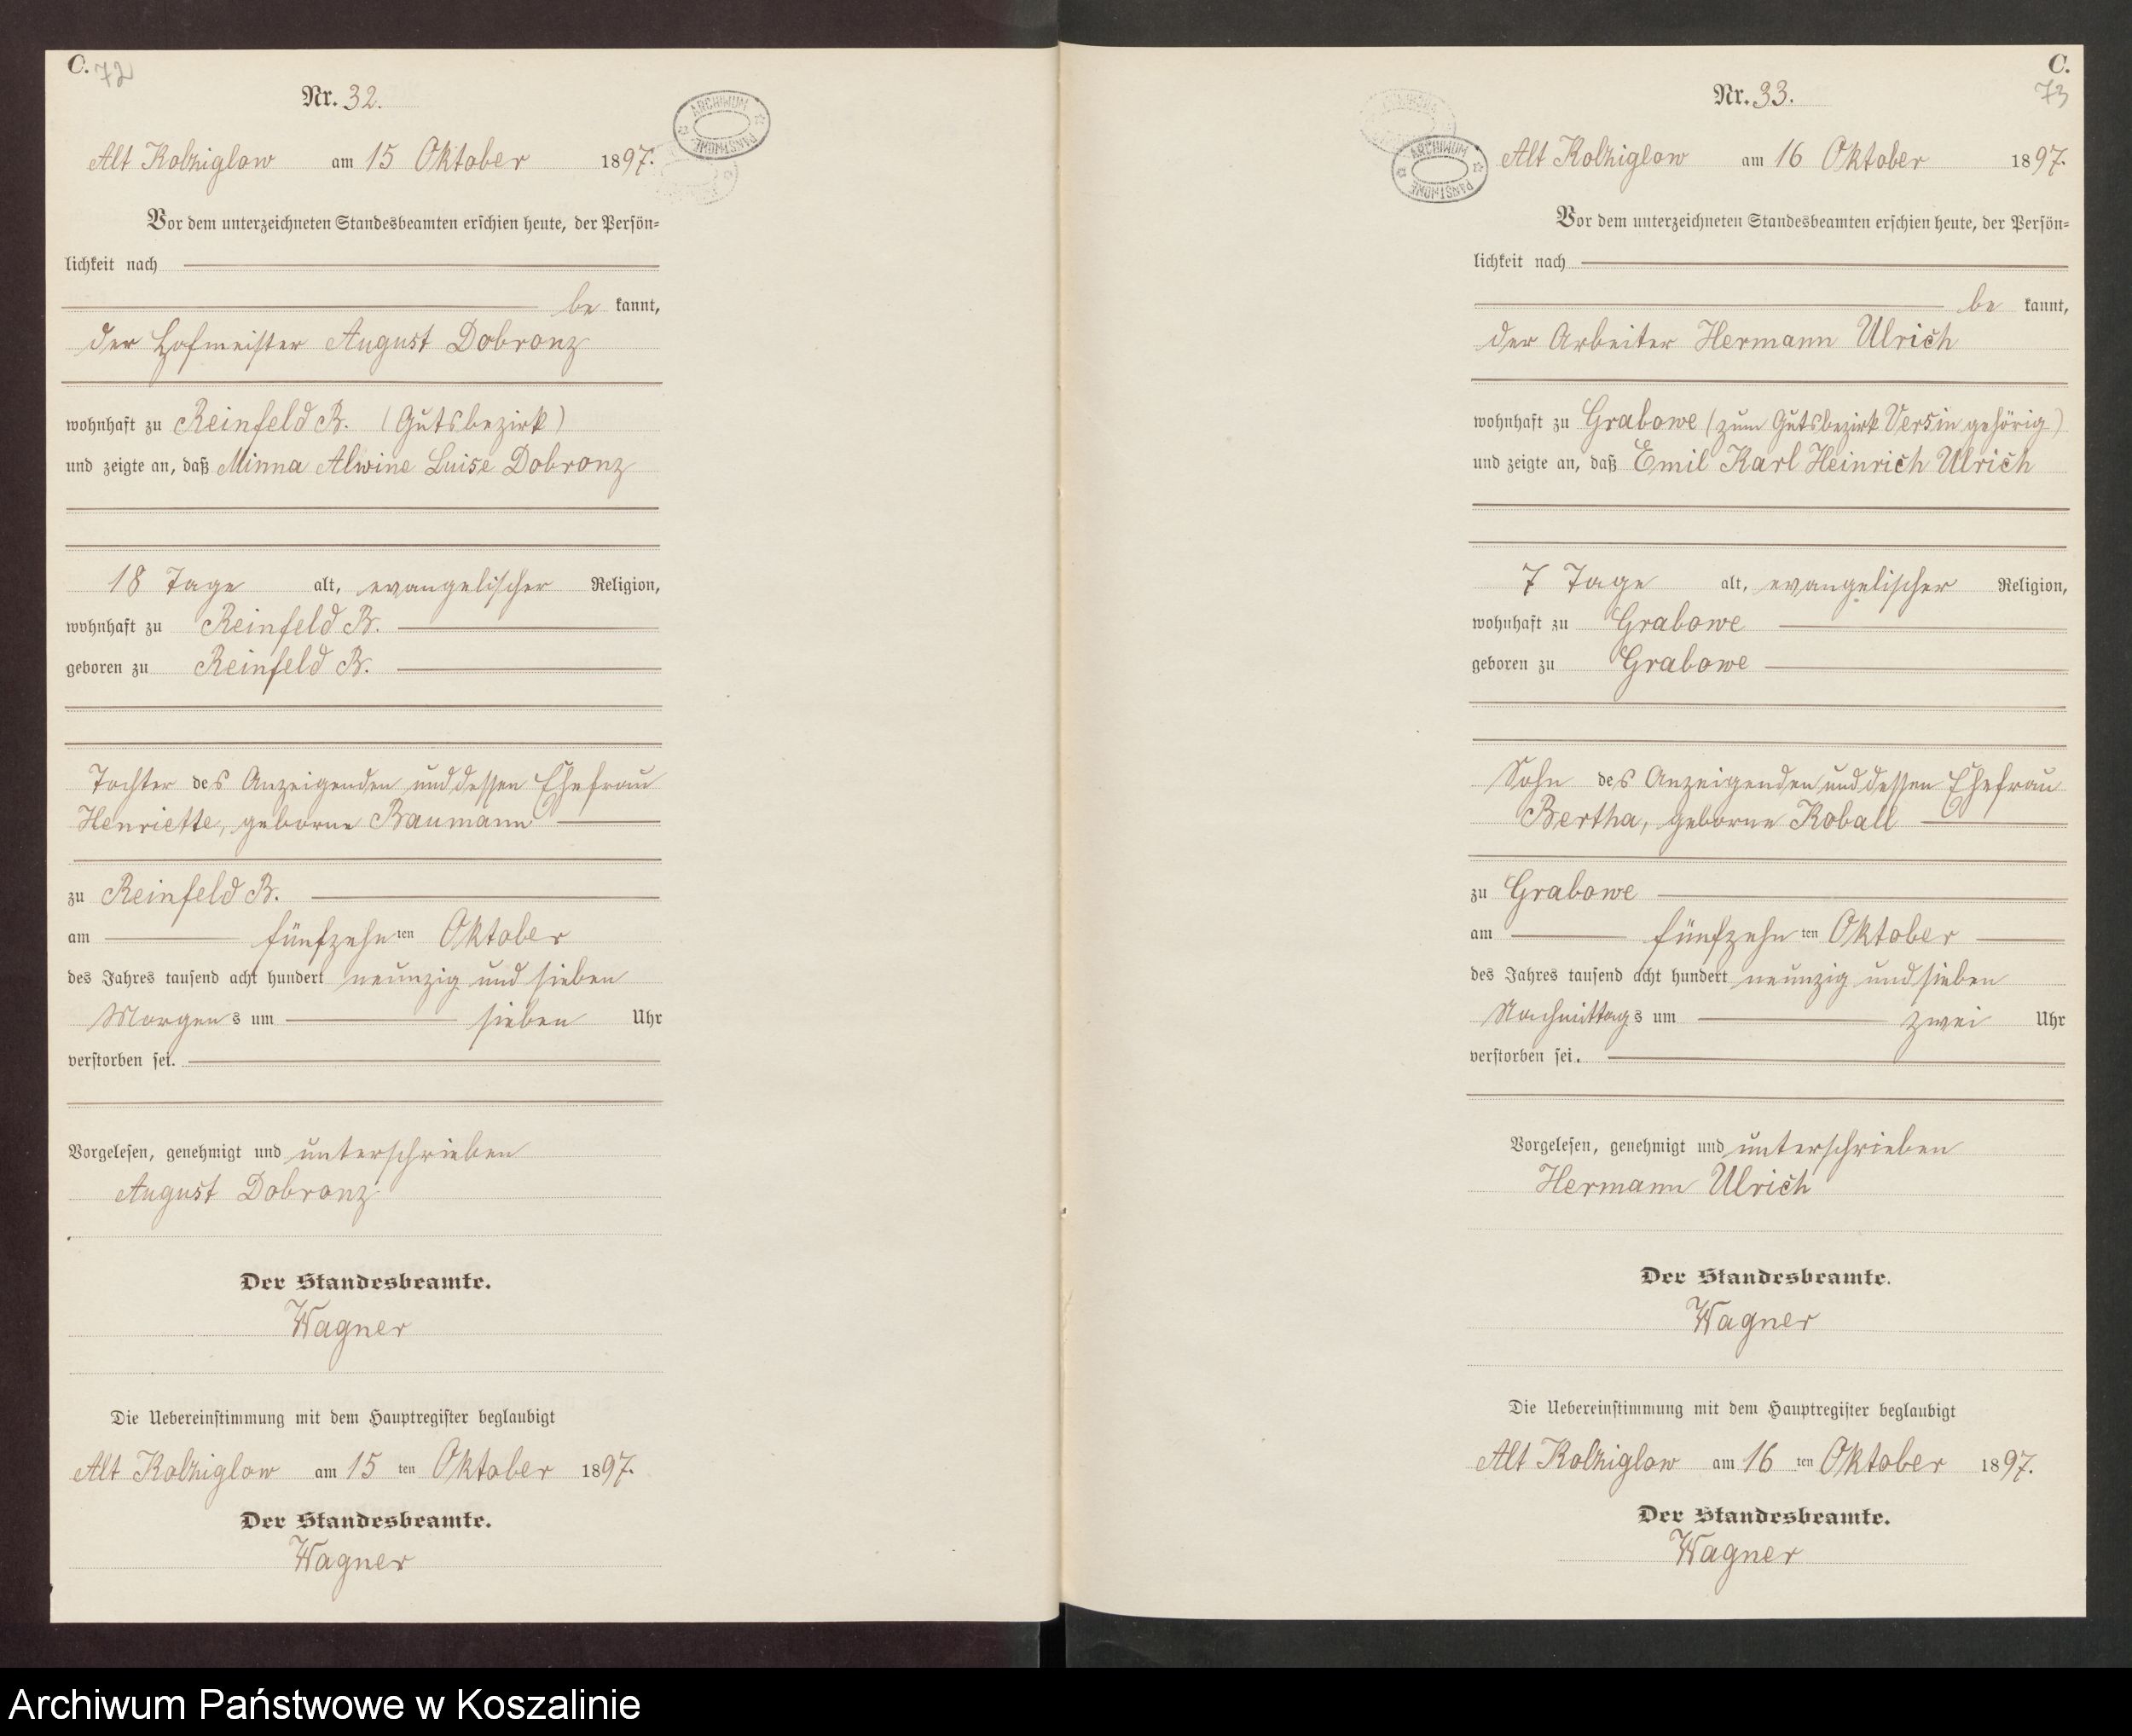 C. 72
Nr. 32.
ARCHIWUM PAŃSTWOWE
Alt Kolziglow am 15 Oktober 1897.
Vor dem unterzeichneten Standesbeamten erschien heute, der Persön-
lichkeit nach
be kannt,
der Hofmeister August Dobronz
wohnhaft zu Reinfeld B. (Gutsbezirk)
und zeigte an, daß Minna Alwine Luise Dobronz
18 Tage alt, evangelischer Religion,
wohnhaft zu Reinfeld B.
geboren zu Reinfeld B.
Tochter des Anzeigenden und dessen Ehefrau
Henriette, geborne Baumann
zu Reinfeld B.
am fünfzehn ten Oktober
des Jahres tausend acht hundert neunzig und sieben
Morgens um sieben Uhr
verstorben sei.
Vorgelesen, genehmigt und unterschrieben
August Dobronz
Der Standesbeamte.
Wagner
Die Uebereinstimmung mit dem Hauptregister beglaubigt
Alt Kolziglow am 15 ten Oktober 1897.
Der Standesbeamte.
Wagner
C.
73
Nr. 33.
ARCHIWUM PAŃSTWOWE
Alt Kolziglow am 16 Oktober 1897.
Vor dem unterzeichneten Standesbeamten erschien heute, der Persön-
lichkeit nach
be kannt,
der Arbeiter Hermann Ulrich
wohnhaft zu Grabowe (zum Gutsbezirk Versin gehörig)
und zeigte an, daß Emil Karl Heinrich Ulrich
7 Tage alt, evangelischer Religion,
wohnhaft zu Grabowe
geboren zu Grabowe
Sohn des Anzeigenden und dessen Ehefrau
Bertha, geborne Koball
zu Grabowe
am fünfzehn ten Oktober
des Jahres tausend acht hundert neunzig und sieben
Nachmittags um zwei Uhr
verstorben sei.
Vorgelesen, genehmigt und unterschrieben
Hermann Ulrich
Der Standesbeamte.
Wagner
Die Uebereinstimmung mit dem Hauptregister beglaubigt
Alt Kolziglow am 16 ten Oktober 1897.
Der Standesbeamte.
Wagner
Archiwum Państwowe w Koszalinie